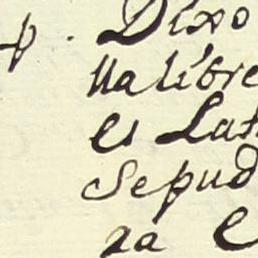 p. Dixo
lla libre
es Lat
Sepud
za E